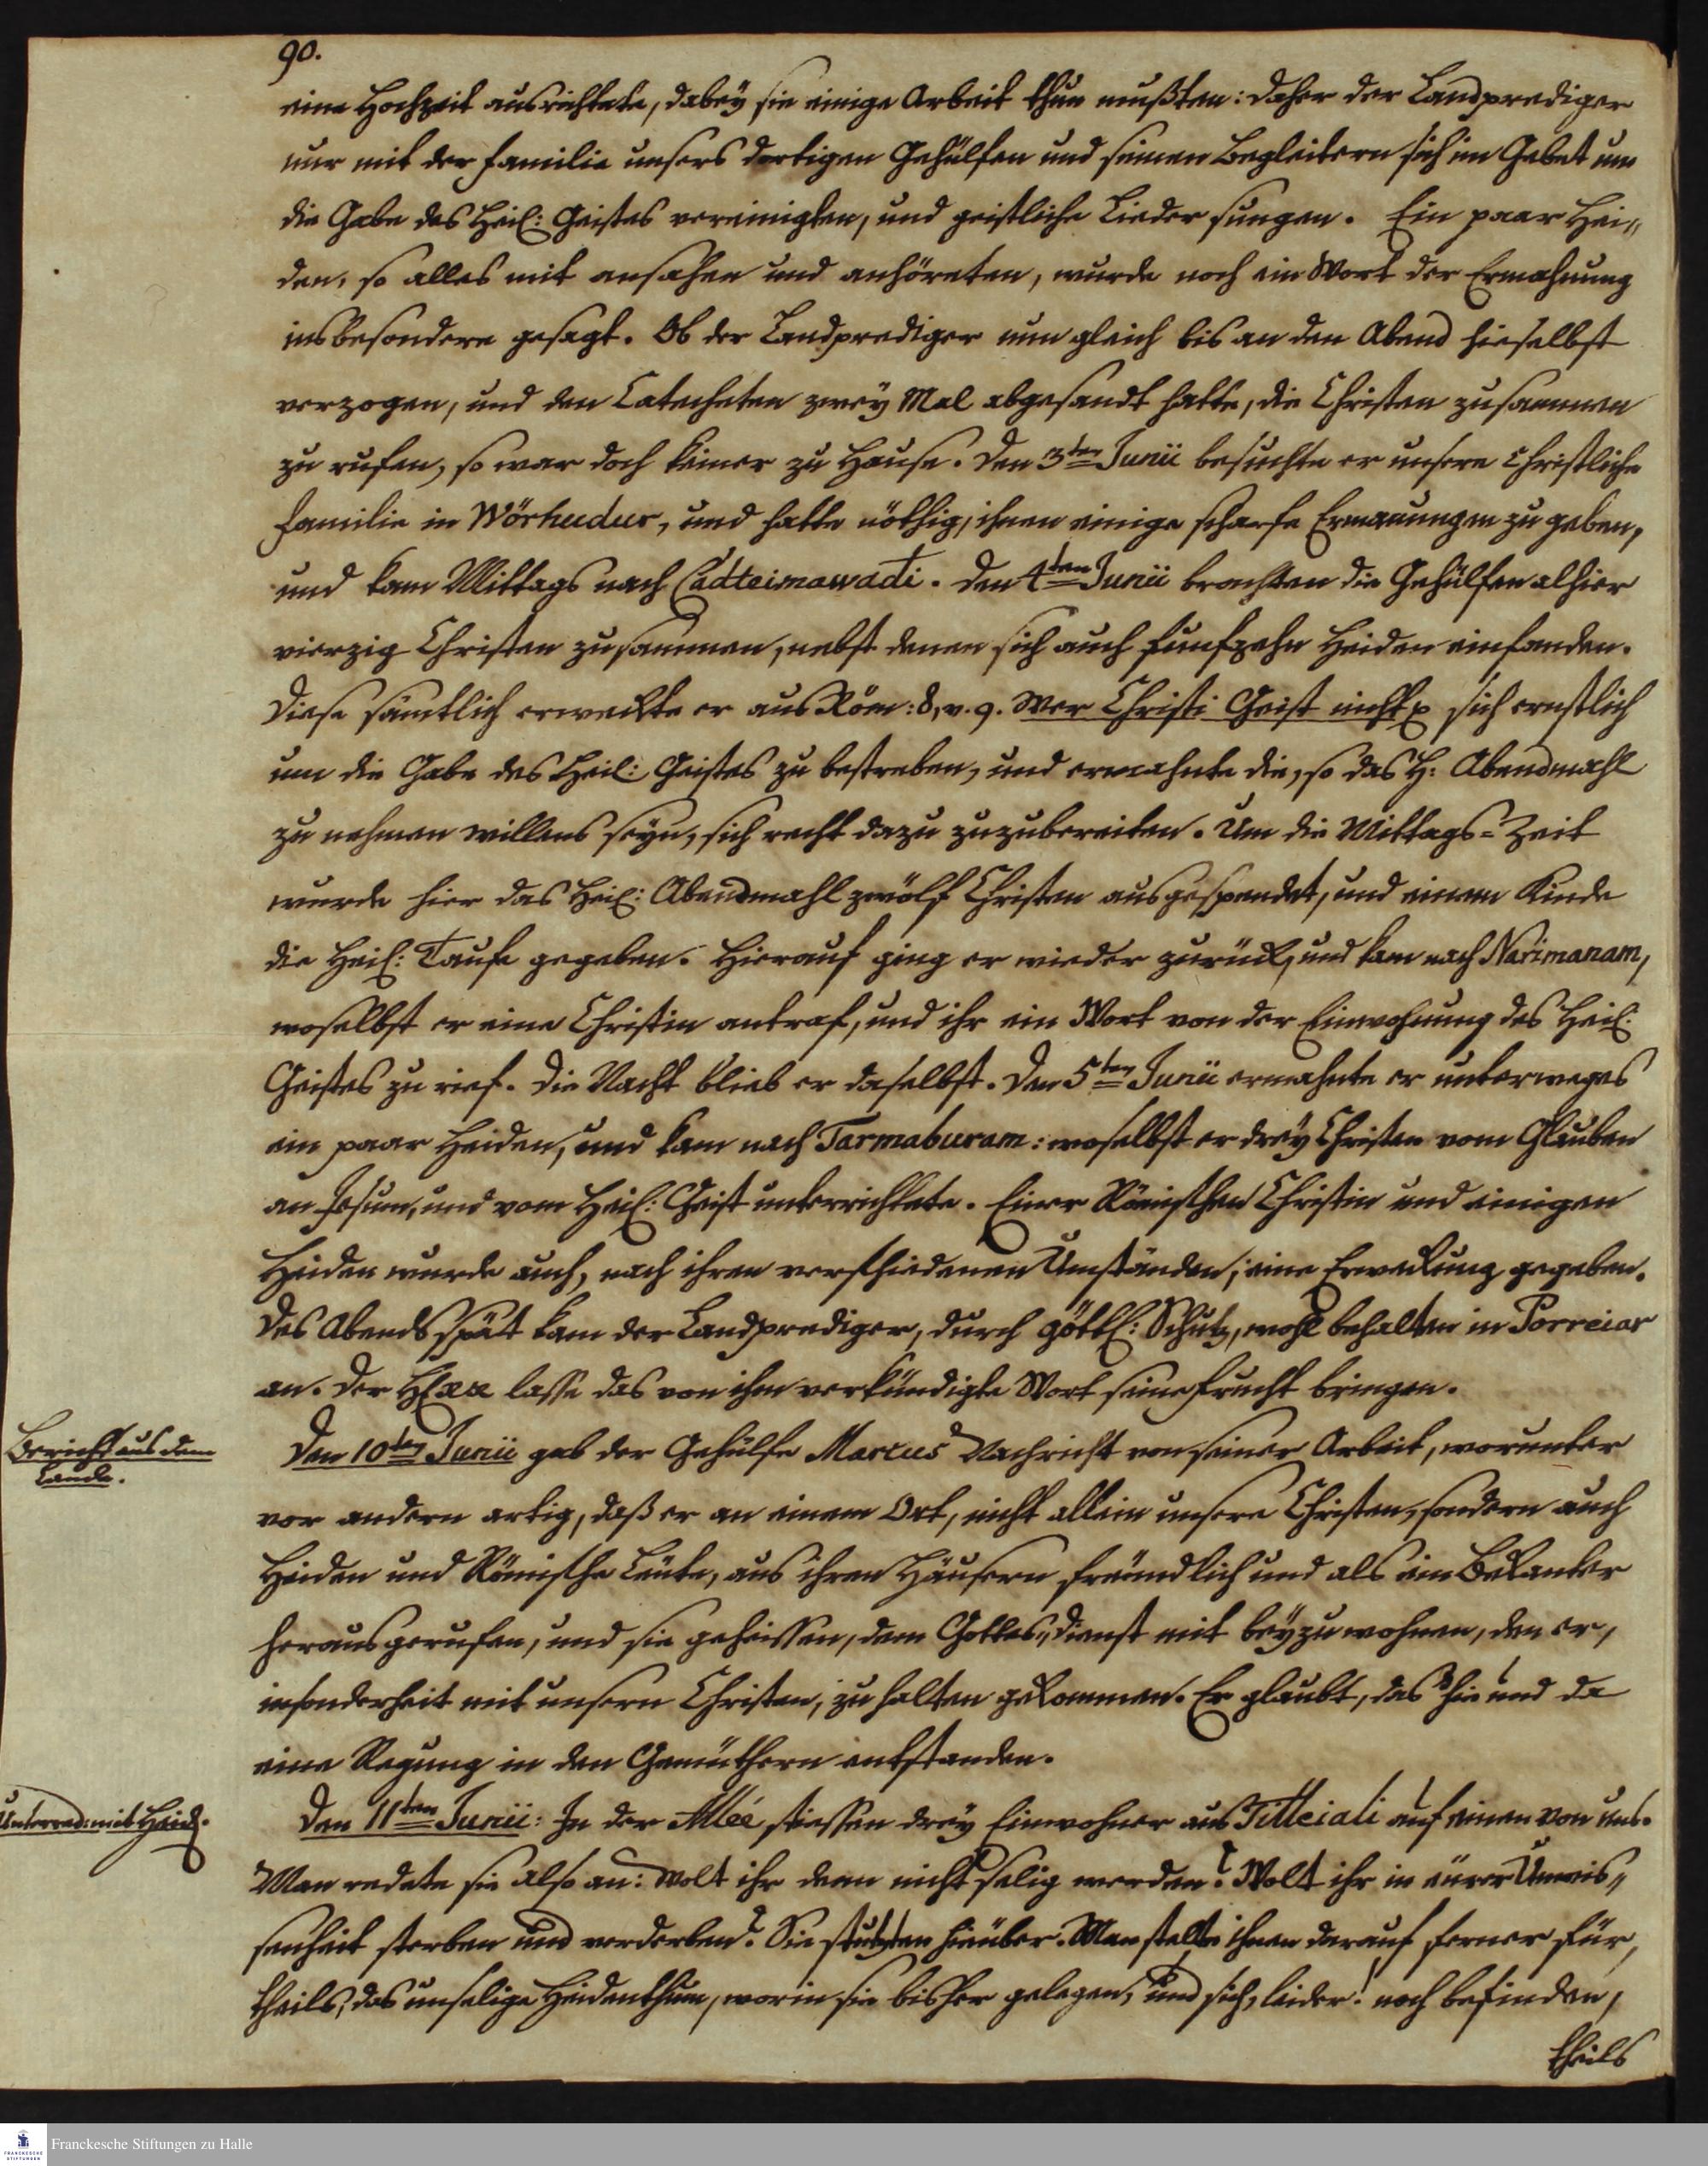 90.
eine Hochzeit ausrichtete, dabeÿ sie einige Arbeit thun mußten: daher der Landprediger
nur mit der Familie unsers dortigen Gehülfen und seinen Begleitern sich im Gebet um
die Gabe des Heil: Geistes vereinigten, und geistliche Lieder sungen. Ein paar Hei„
den, so alles mit ansahen und anhöreten, wurde noch ein Wort der Ermahnung
insbesondere gesagt. Ob der Landprediger nun gleich bis an den Abend hieselbst
verzogen, und den Catecheten zweÿ Mal abgesandt hatte, die Christen zusammen
zu rufen, so war doch keiner zu Hause. Den 3ten Junii besuchte er unsere Christliche
Familie in Wörkudur, und hatte nöthig, ihnen einige scharfe Ermanungen zu geben,
und kam Mittags nach Cadteimawadi. Den 4ten Junii brachten die Gehülfen alhier
vierzig Christen zusammen, nebst denen sich auch funfzehn Heiden einfanden.
Diese sämtlich erweckte er aus Röm: 8, v. 9. Wer Christi Geist nicht p sich ernstlich
um die Gabe des Heil: Geistes zu bestreben, und ermahnte die, so das H: Abendmahl
zu nehmen willens seÿn, sich recht dazu zuzubereiten. Um die Mittags-Zeit
wurde hier das Heil: Abendmahl zwölf Christen ausgespendet, und einem Kinde
die Heil: Taufe gegeben. Hierauf ging er wieder zurück, und kam nach Narimanam,
woselbst er eine Christin antraf, und ihr ein Wort von der Einwohnung des Heil:
Geistes zu rief. Die Nacht blieb er daselbst. Den 5ten Junii ermahnte er unterweges
ein paar Heiden, und kam nach Tarmaburam: woselbst er dreÿ Christen vom Glauben
an Jesum, und vom Heil: Geist unterrichtete. Einer Römischen Christin und einigen
Heiden wurde auch, nach ihren verschiedenen Umständen, eine Erweckung gegeben.
Des Abends spät kam der Landprediger, durch göttl: Schutz, wohl behalten in Porreiar
an. Der HErr lasse das von ihm verkündigte Wort seine Frucht bringen.
Bericht aus dem
Lande.
Den 10ten Junii gab der Gehülfe Marcus Nachricht von seiner Arbeit, worunter
vor andern artig, daß er an einem Ort, nicht allein unsere Christen, sondern auch
Heiden und Römische Leute, aus ihren Häusern freündlich und als ein Bekanter
herausgerufen, und sie geheissen, dem Gottes„dienst mit beÿzuwohnen, den er,
insonderheit mit unsern Christen, zu halten gekommen. Er glaubt, das hie und da
eine Regung in den Gemüthern entstanden.
Unterred: mit Heid.
Den 11ten Junii: In der Alléé stiessen dreÿ Einwohner aus Titteiali auf einen von uns.
Man redete sie also an: Wolt ihr denn nicht selig werden? Wolt ihr in eürer Unwis„
senheit sterben und verderben? Sie stutzten hierüber. Man stelte ihnen darauf ferner für,
theils, das unselige Heidenthum, worin sie bisher gelegen, und sich, leider! noch befinden,
theils
Franckesche Stiftungen zu Halle